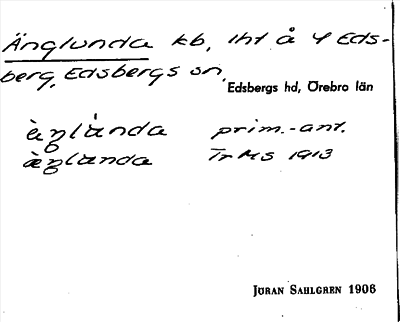 Änglunda kb, lht å Y Eds-
berg, Edsbergs sn,
Edsbergs hd, Örebro län
prim.-ant.
Tr MS 1913
JÖRAN SAHLGREN 1906